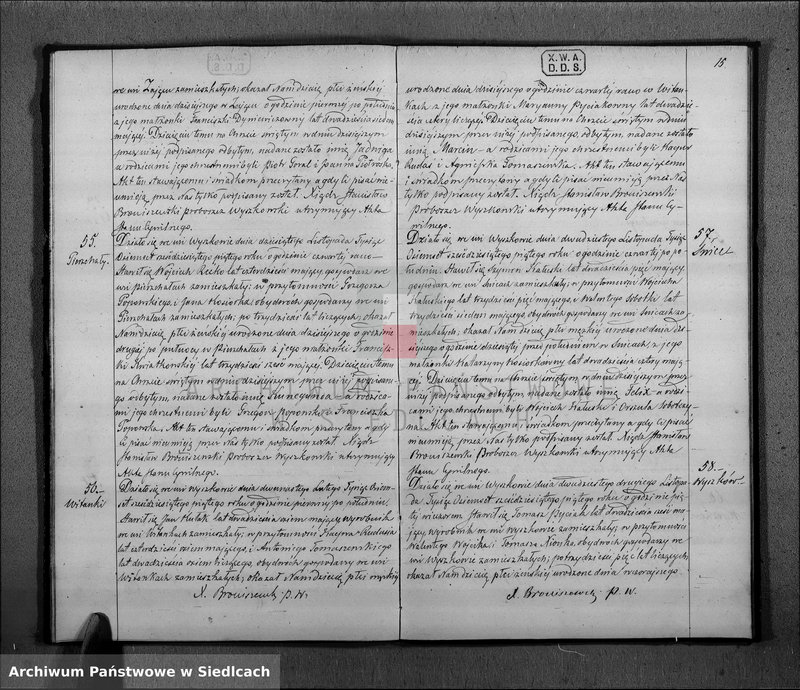 X.W.A.
D.D.S.
we wsi Zającu zamieszkałych; okazał Nam dziecię płci żeńskiej
urodzone dnia dzisiejszego w Zającu o godzinie pierwszej po północy
z jego małżonki Franciszki lat dwadzieścia siedem
mającej. Dziecięciu temu na Chrzcie świętym w dniu dzisiejszym
przez niżej podpisanego odbytym, nadane zostało imię Jadwiga
a rodzicami jego chrestnemi byli Piotr Goral i Joanna
Akt ten stawającemu i świadkom przeczytany a gdy ci pisać nie
umieją przez Nas tylko podpisany został. Xiądz Stanisław
Browiszewski proboszcz Wyszkowski utrzymujący Akta
Stanu Cywilnego.
55.
Pierzchały.
Działo się we wsi Wyszkowie dnia dziesiątego Listopada Tysiąc
Ośmset sześćdziesiątego piątego roku o godzinie czwartej rano
Stawił się Wojciech lat czterdzieści mający, gospodarz we
wsi Pierzchałach zamieszkały; w przytomności Grzegorza
Popowskiego i Jana Kosiorka obydwóch gospodarzy we wsi
Pierzchałach zamieszkałych; po trzydzieści lat liczących; okazał
Nam dziecię płci żeńskiej urodzone dnia dzisiejszego o godzinie
drugiej po północy w Pierzchałach z jego małżonki Francisz-
ki Kwiatkowskiej lat trzydzieści sześć mającej. Dziecięciu temu
na Chrzcie świętym w dniu dzisiejszym przez niżej podpisane-
go odbytym, nadane zostało imię Kunegunda a rodzica-
mi jego chrestnemi byli Grzegorz Popowski i Franciszka
Akt ten stawającemu i świadkom przeczytany a gdy
ci pisać nie umieją przez Nas tylko podpisany został. Xiądz
Stanisław Browiszewski Proboszcz Wyszkowski utrzymujący
Akta Stanu Cywilnego.
56.
Witanki
Działo się we wsi Wyszkowie dnia dwunastego Tysiąc Ośm-
set sześćdziesiątego piątego roku o godzinie pierwszej po południu.
Stawił się Jan lat dwadzieścia siedm mający wyrobnik
we wsi Witankach zamieszkały; w przytomności
lat czterdzieści siedm mającego i Antoniego Tomaszewskiego
lat dwadzieścia ośm liczącego, obydwóch gospodarzy we wsi
Witankach zamieszkałych; okazał Nam dziecię płci męzkiej
X. Browiszewski p. W.
15
X.W.A.
D.D.S.
urodzone dnia dzisiejszego o godzinie czwartej rano w Witan-
kach z jego małżonki Maryanny Pysiakówny lat dwadzie-
ścia cztery liczącej. Dziecięciu temu na Chrzcie świętym w dniu
dzisiejszym przez niżej podpisanego, odbytym, nadane zostało
imię Marcin a rodzicami jego chrestnemi byli
i Agnieszka Tomaszewska. Akt ten stawającemu
i świadkom przeczytany a gdy ci pisać nie umieją przez Nas
tylko podpisany został. Xiądz Stanisław Browiszewski
Proboszcz Wyszkowski utrzymujący Akta Stanu Cy-
wilnego.
57.
Śnice
Działo się we wsi Wyszkowie dnia dwudziestego Listopada Tysiąc
Ośmset sześćdziesiątego piątego roku o godzinie czwartej po po-
łudniu. Stawił się Szymon lat dwadzieścia pięć mający
gospodarz we wsi Śnicach zamieszkały; w przytomności Wojciecha
lat trzydzieści pięć mającego, i Walentego Sobotki lat
trzydzieści siedm mającego obydwóch gospodarzy we wsi Śnicach za-
mieszkałych; okazał Nam dziecię płci męzkiej urodzone dnia dzi-
siejszego o godzinie dziesiątej przed południem w Śnicach, z jego
małżonki Katarzyny Kosiorkówny lat dwadzieścia cztery mają-
cej. Dziecięciu temu na Chrzcie świętym w dniu dzisiejszym przez
niżej podpisanego odbytym, nadane zostało imię Felix a rodzi-
cami jego chrestnemi byli Wojciech i Orszula
Akt ten stawającemu i świadkom przeczytany a gdy ci pisać
nie umieją, przez Nas tylko podpisany został. Xiądz Stanisław
Browiszewski Proboszcz Wyszkowski utrzymujący Akta
Stanu Cywilnego.
58.
Wyszków.
Działo się we wsi Wyszkowie dnia dwudziestego drugiego Listopa-
da Tysiąc Ośmset sześćdziesiątego piątego roku o godzinie pią-
tej wieczorem Stawił się Tomasz Pysiak lat dwadzieścia sześć ma-
jący, wyrobnik we wsi Wyszkowie zamieszkały; w przytomności
Walentego Wojcika i Tomasza obydwóch gospodarzy we
wsi Wyszkowie zamieszkałych; po trzydzieści pięć lat liczących;
okazał Nam dziecię płci żeńskiej urodzone dnia wczorajszego
X. Browiszewski p. W.
Archiwum Państwowe w Siedlcach